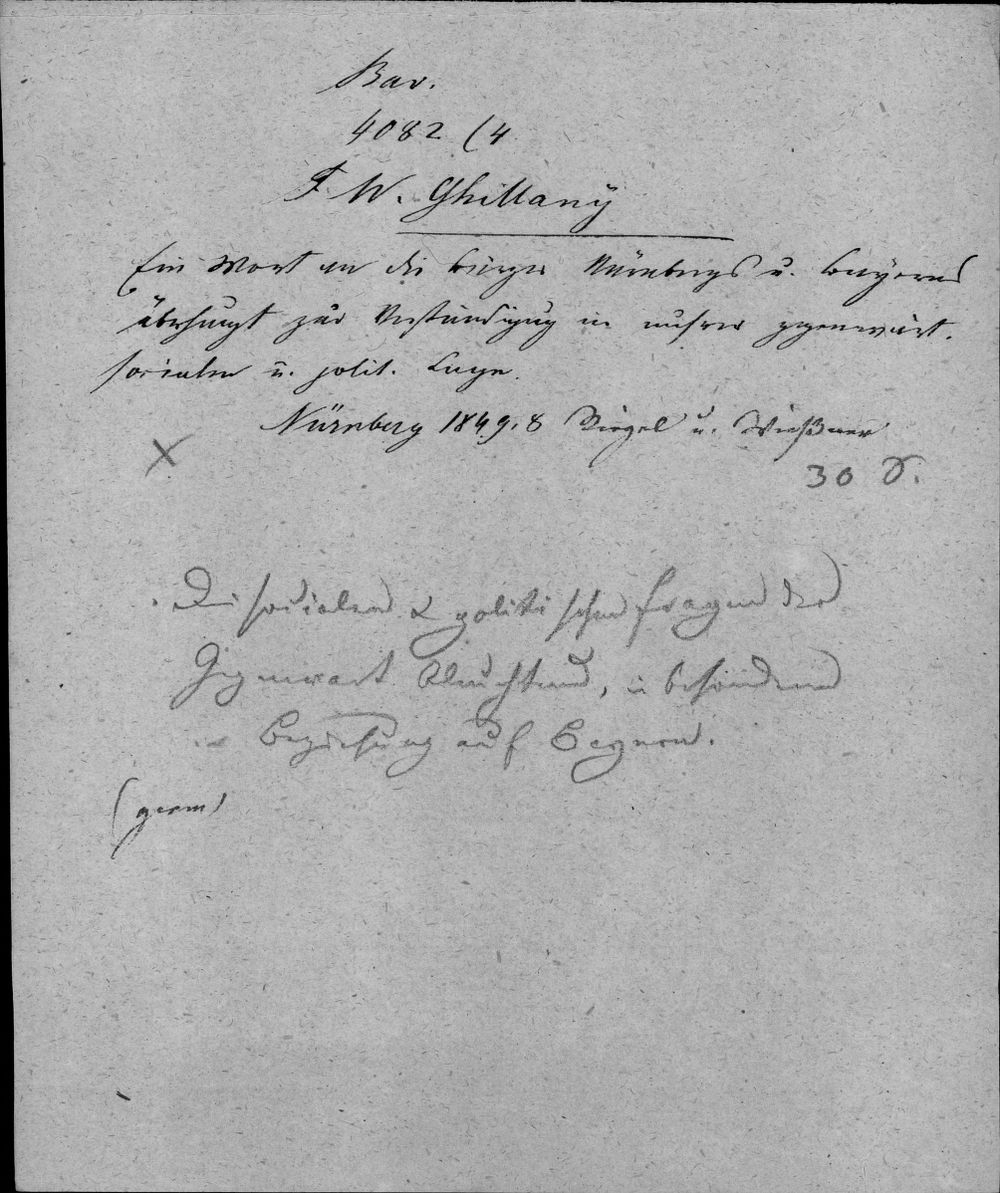 Bav.
4082 (4
F W. Ghillany
Ein Wort an die Bürger Nürnbergs u. Bayerns
überhaupt zur Verständigung in unsrer gegenwärt.
socialen u. polit. Lage.
Nürnberg 1849. 8 Riegel u. Wießner
30 S.
Die socialen & politischen Fragen der
Gegenwart beleuchtend, in besonderer
Beziehung auf Bayern.
(germ)